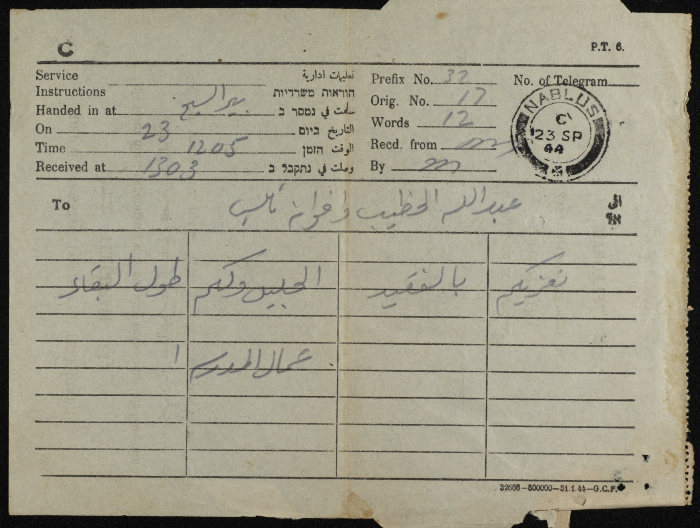 C
P.T. 6.
Service تعليمات ادارية
Instructions הוראות משרדיות
Handed in at بير السبع سلمت في נמסר ב
On 23 التاريخ ביום
Time 1205 الوقت הזמן
Received at 1303 وصلت في נתקבל ב
Prefix No. 32 No. of Telegram
Orig. No. 17
Words 12
Recd. from
By m
NABLUS
C
23 SP
44
To عبدالله الخطيب واخوانه نابلس الى
אל
نعزيكم بالفقيد الجليل ولكم طول البقاء
عمال
32666—500000—31.1.44—G.C.P.